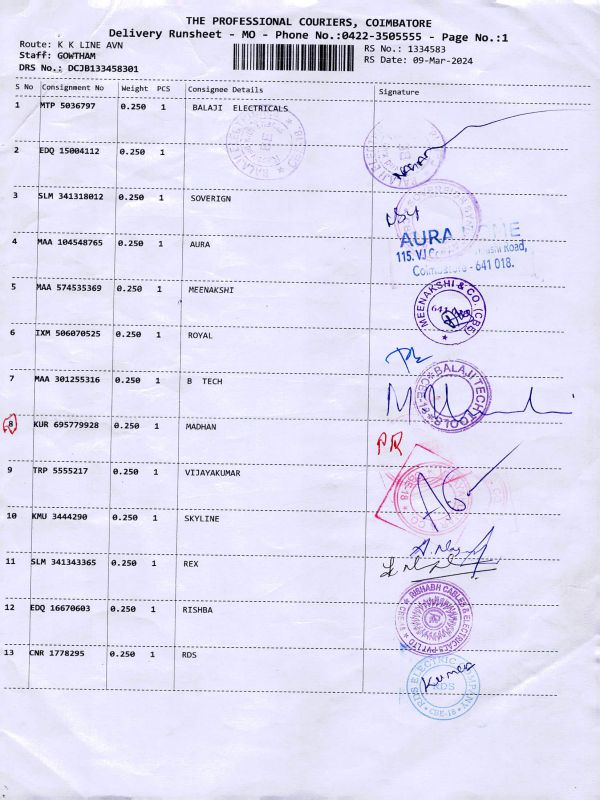 THE PROFESSIONAL COURIERS, COIMBATORE
Delivery Runsheet - MO - Phone No.:0422-3505555 - Page No.:1
Route: K K LINE AVN
RS No.: 1334583
Staff: GOWTHAM
RS Date: 09-Mar-2024
DRS No.: DCJB133458301
S No Consignment No Weight PCS Consignee Details Signature
1 MTP 5036797 0.250 1 BALAJI ELECTRICALS
2 EDQ 15004112 0.250 1
3 SLM 341318012 0.250 1 SOVERIGN
4 MAA 104548765 0.250 1 AURA
AURA
115. VJ Road,
Coimbatore - 641 018.
5 MAA 574535369 0.250 1 MEENAKSHI
MEENAKSHI & CO. (CBE)
6 IXM 506070525 0.250 1 ROYAL
7 MAA 301255316 0.250 1 B TECH
BALAJI TECH TOOLS CBE-18
8 KUR 695779928 0.250 1 MADHAN
PR
9 TRP 5555217 0.250 1 VIJAYAKUMAR
10 KMU 3444290 0.250 1 SKYLINE
11 SLM 341343365 0.250 1 REX
12 EDQ 16670603 0.250 1 RISHBA
RISHABH CABLES & ELECTRICALS PVT LTD
13 CNR 1778295 0.250 1 RDS
RDS ELECTRIC COMPANY
Kumar
RDS
CBE-18